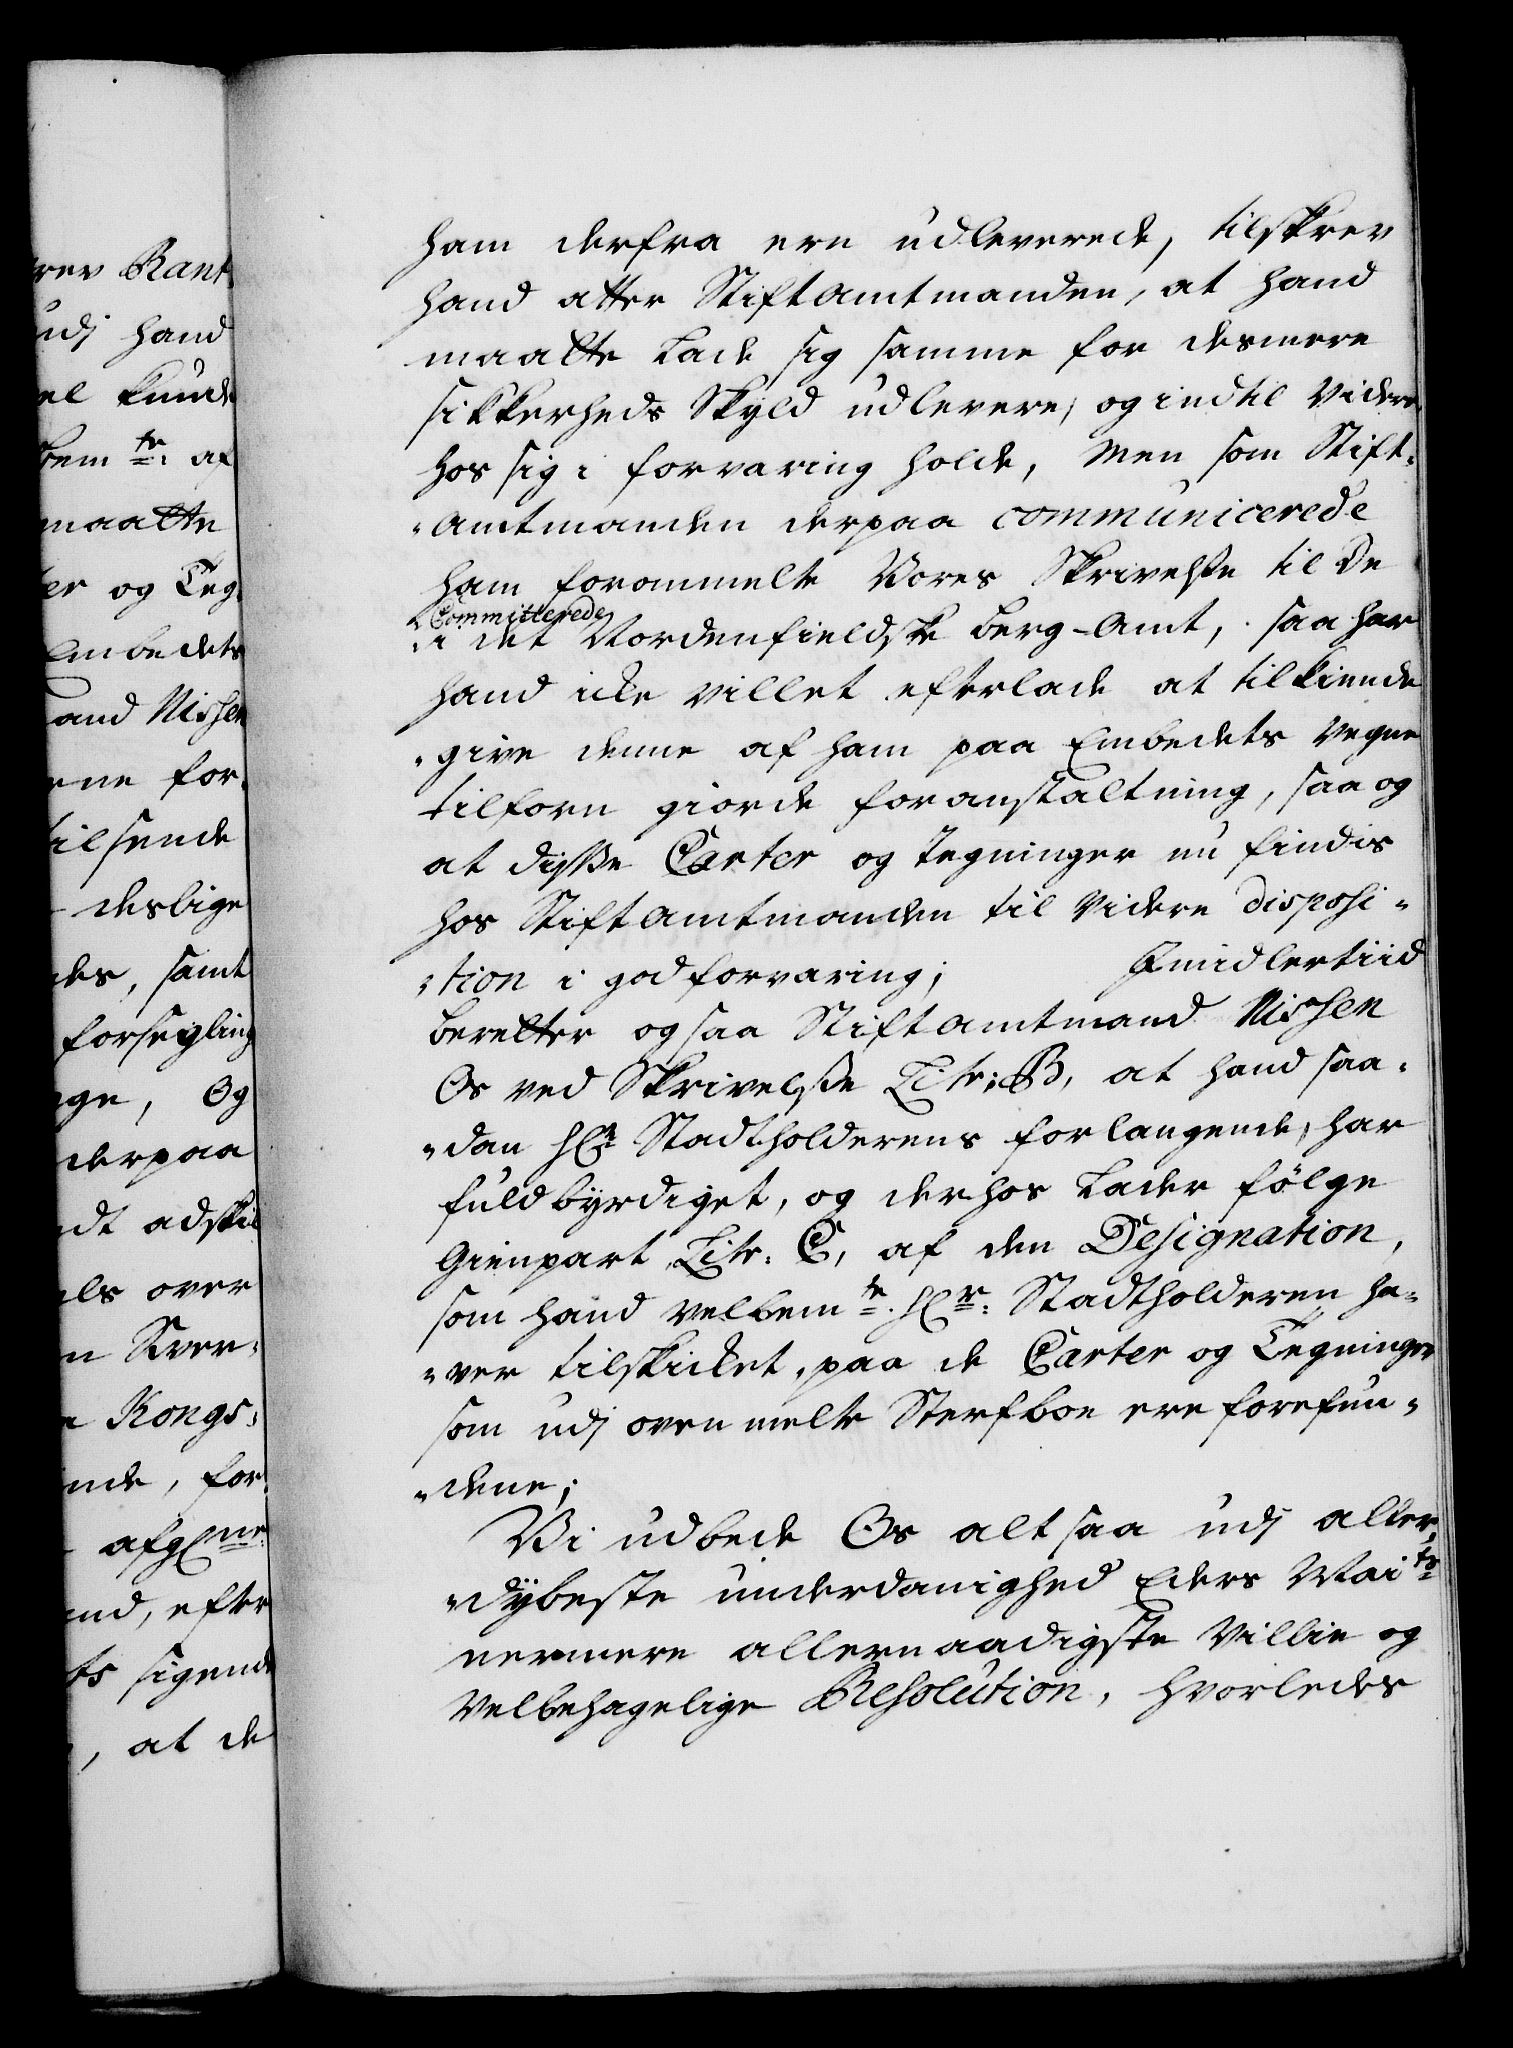 rev Rant
udj hand
el kunde
bem te: af
maatte
er og Teg
Embedets
and Nissen
ene for
tilsende
desliige
des, samt
forsegling
ge, Og
derpaa
dt adskil
els over
n Sver
Kongs
nde, for
afg ne
nd, efter
ts sigende
, at de
ham derfra ere udleverede, tilskrev
hand atter Stiftamtmanden, at hand
maatte Lade sig samme for desmere
sikkerheds Skyld udlevere, og indtil Videre
hos sig i forvaring holde, Men som Stift-
-Amtmanden derpaa communicerede
ham forommelte Vores Skrivelsse til De
Committerede
i det Nordenfieldske Berg-Amt, saa har
hand icke villet efterlade at tilkiende
-give denne af ham paa Embedets Vegne
tilforn giorde foranstaltning, saa og
at disse Carter og Tegninger nu findis
hos Stiftamtmanden til Videre disposi-
-tion i god forvaring; Emidlertiid
beretter ogsaa Stiftamtmand Nissen
Os ved Skrivelsse Litr: B, at hand saa-
-dan Hr. Stadtholderens forlangende, har
fuldbyrdiget, og derhos Lader følge
Gienpart Litr. C, af den Designation,
som hand velbemte. Hr: Stadtholderen ha-
-ver tilskicket, paa de Carter og Tegninger
som udj ovenmelte Sterfboe ere forefun-
-dene;
Vi udbede Os altsaa udj aller-
-dybeste underdanighed Eders Maits
nermere allernaadigste Villie og
Velbehagelige Resolution, hvorledes